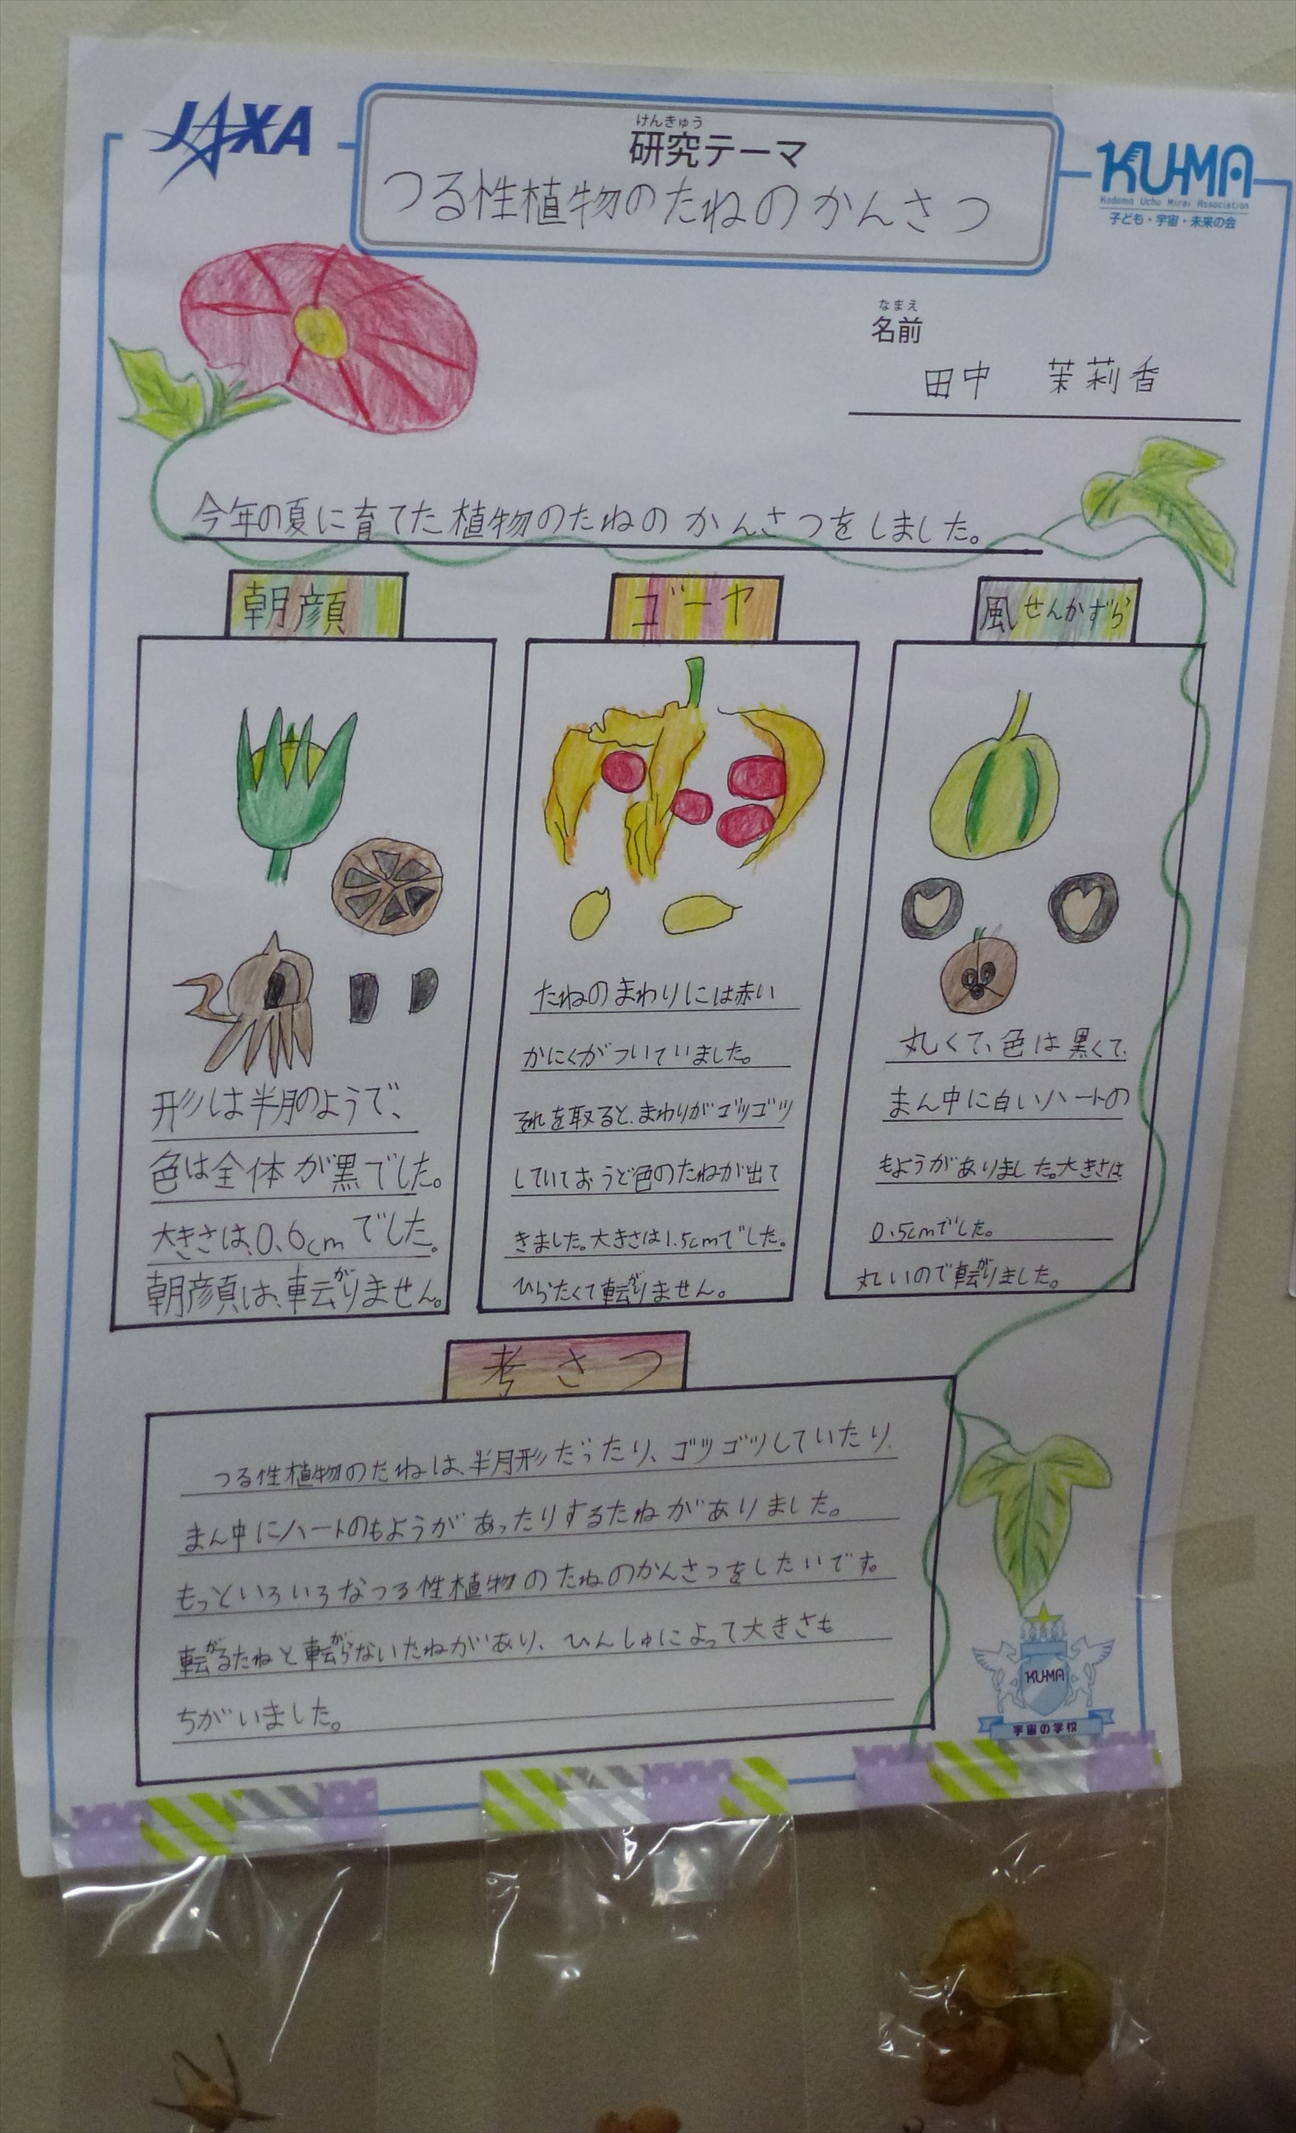 JAXA
けんきゅう
研究テーマ
つる性植物のたねのかんさつ
KU-MA
Kodomo Uchu Mirai Association
子ども・宇宙・未来の会
なまえ
名前
田中 茉莉香
今年の夏に育てた植物のたねのかんさつをしました。
朝顔
形は半月のようで、
色は全体が黒でした。
大きさは、0.6cmでした。
朝顔は、転がりません。
ゴーヤ
たねのまわりには赤い
かにくがついていました。
それを取ると、まわりがゴツゴツ
していておうど色のたねが出て
きました。大きさは1.5cmでした。
ひらたくて転がりません。
風せんかずら
丸くて、色は黒くて、
まん中に白いハートの
もようがありました。大きさは
0.5cmでした。
丸いので転がりました。
考さつ
つる性植物のたねは、半月形だったり、ゴツゴツしていたり、
まん中にハートのもようがあったりするたねがありました。
もっといろいろなつる性植物のたねのかんさつをしたいです。
転がるたねと転がらないたねがあり、ひんしゅによって大きさも
ちがいました。
KU-MA
宇宙の学校